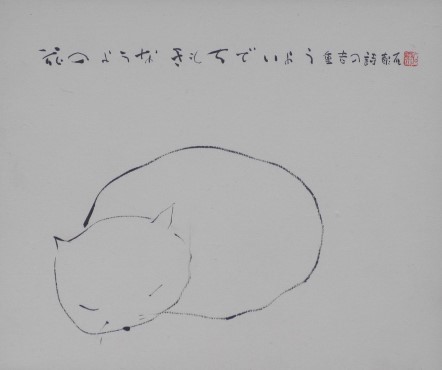 花のようなきもちでいよう 重吉の詩